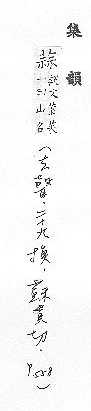 集韻
蒜 說文葷菜
一曰山名
(去聲．二十九換．蘇貫切．P.558)